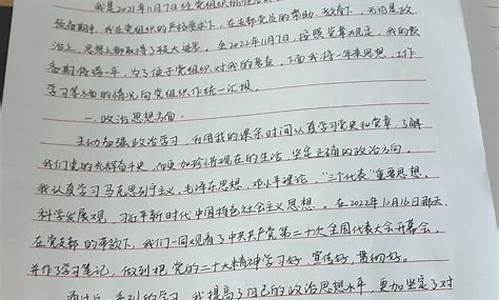 我是2021年11月7日经党组织批准
致备期中,我在党组织的严格要求下,在支部党员的帮助、教育下,无论是政
治上,思想上都取得了较大进步。至2022年11月7日,按照党章规定,我的
备期将满一年。为了便于党组织对我的考察,下面我将一年来思想、工作
学习等方面的情况向党组织作统一汇报。
一、政治思想方面.
主动加强政治学习,利用我的课余时间认真学习党史和党章,了解
我们党的光辉奋斗史,从而更加珍惜现在的生活,坚定正确的政治方向。
我认真学习马克思列宁主义,毛泽东思想,邓小平理论,“三个代表”重要思想,
科学发展观,习近平新时代中国特色社会主义思想。在2022年10月16日那天,
在党支部的带领下,我们一同观看了中共共产党第二十次全国代表大会开幕会,
并作了学习笔记,做到把党的二十大精神学习好,宣传好,贯彻好。
通过这一系列的学习,我提高了自己的政治思想水平,更加坚定了对